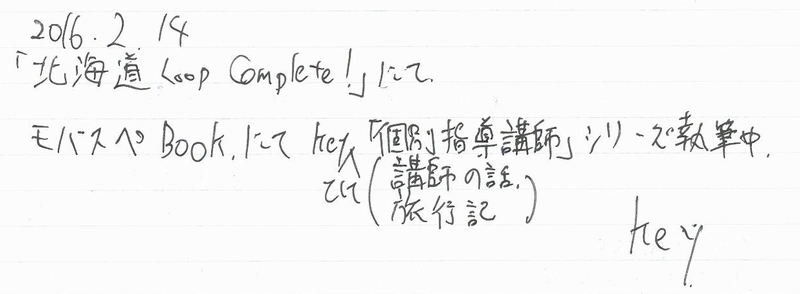 2016.2.14
「北海道 Loop Complete!」にて.
モバスペBook.にて key 「個別指導講師」シリーズ執筆中.
とにて(講師の話.
旅行記)
key